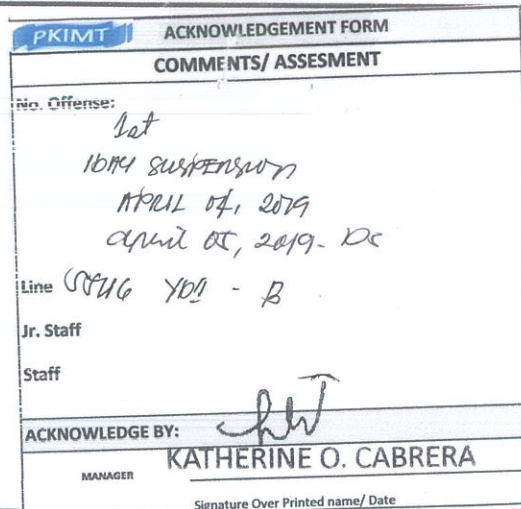 PKIMT ACKNOWLEDGEMENT FORM
COMMENTS/ ASSESMENT
No. Offense:
1st
1DAY SUSPENSION
APRIL 04, 2019
April 05, 2019 -
Line - B
Jr. Staff
Staff
ACKNOWLEDGE BY:
KATHERINE O. CABRERA
MANAGER
Signature Over Printed name/ Date